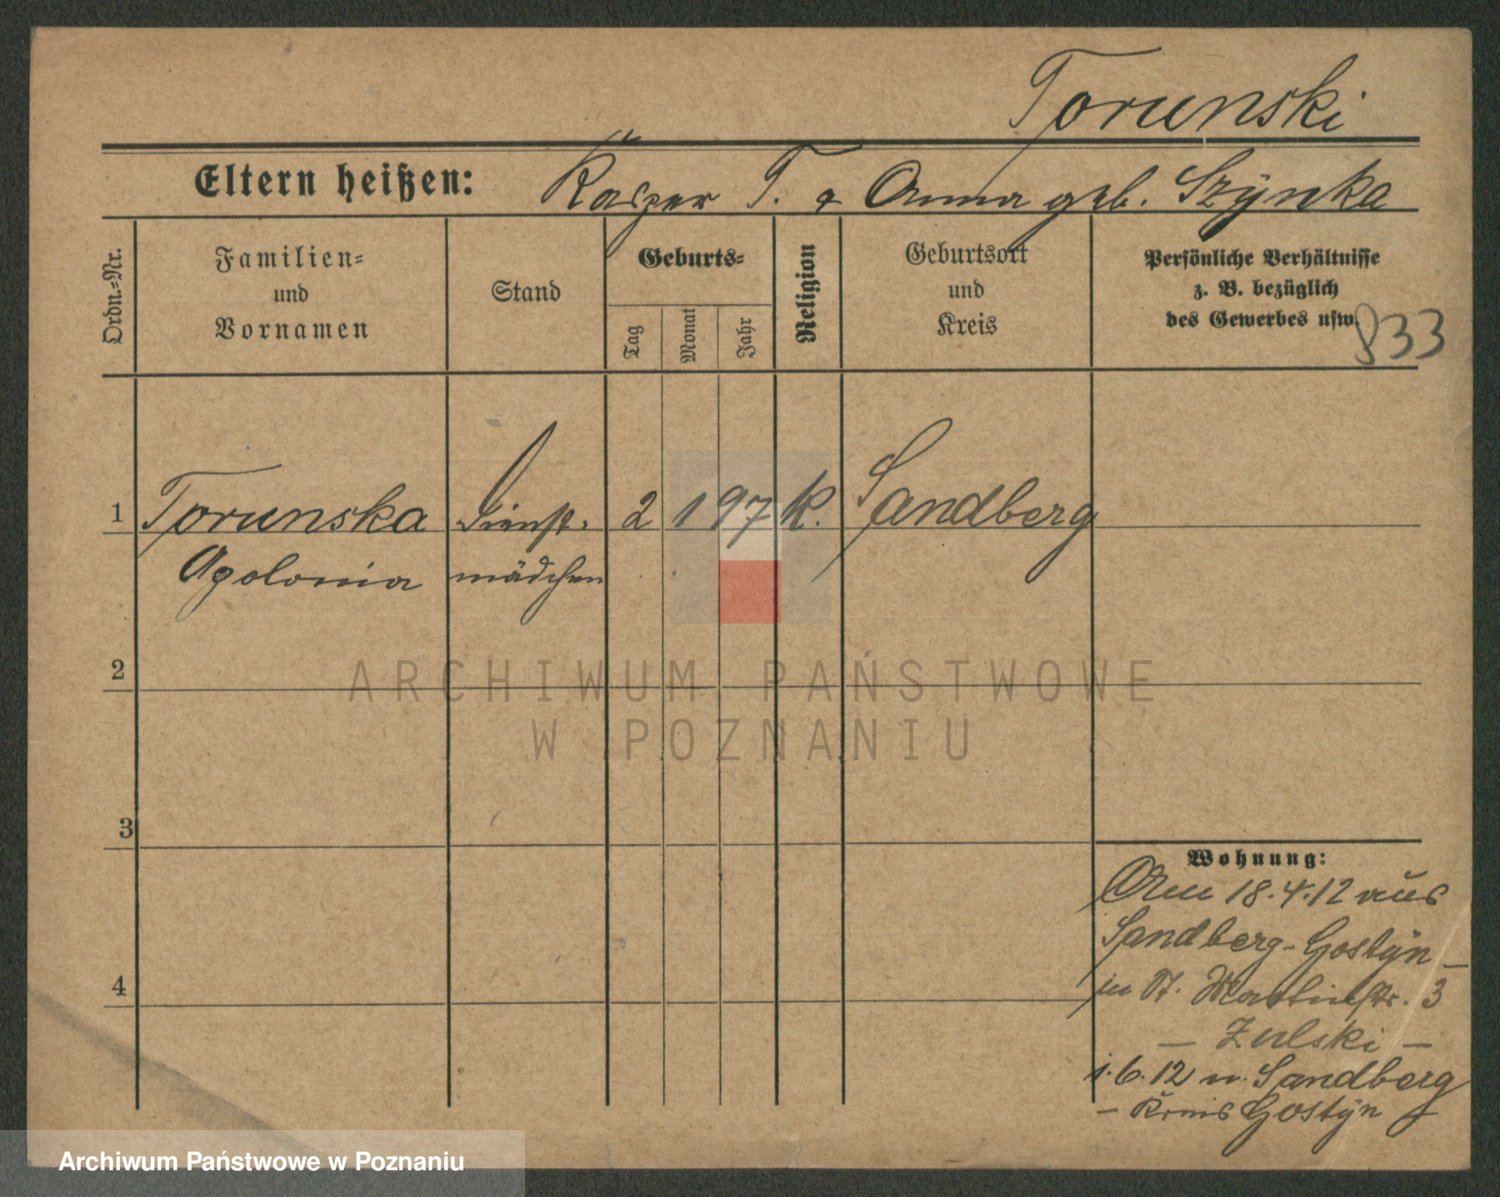 Torunski
Eltern heißen: Kasper T. & Anna geb. Szynka
Ordn.-Nr.
Familien-
und
Vornamen
Stand
Geburts-
Tag
Monat
Jahr
Religion
Geburtsort
und
Kreis
Persönliche Verhältnisse
z. B. bezüglich
des Gewerbes usw.
833
1 Torunska Dienst- 2 1 97 k. Sandberg
Apolonia mädchen
2
3
4
Wohnung:
18.4.12 aus
Sandberg-Gostÿn -
in St. Martinstr. 3
- Zulski -
1.6.12 n. Sandberg
- Kreis Gostÿn
ARCHIWUM PAŃSTWOWE
W POZNANIU
Archiwum Państwowe w Poznaniu